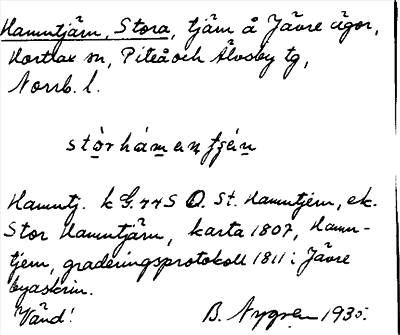 Hamntjärn, Stora, tjärn å Jävre ägor,
Hortlax sn, Piteå och Älvsby tg,
Norrb. l.
stòrhámantjǽn
Hamntj. k G. 44 S O. St. Hamntjern, ek.
Stor Hamntjärn, karta 1807, Hamn-
tjern, graderingsprotokoll 1811: Jävre
byaskrin.
Vänd! B. Nygren 1935.